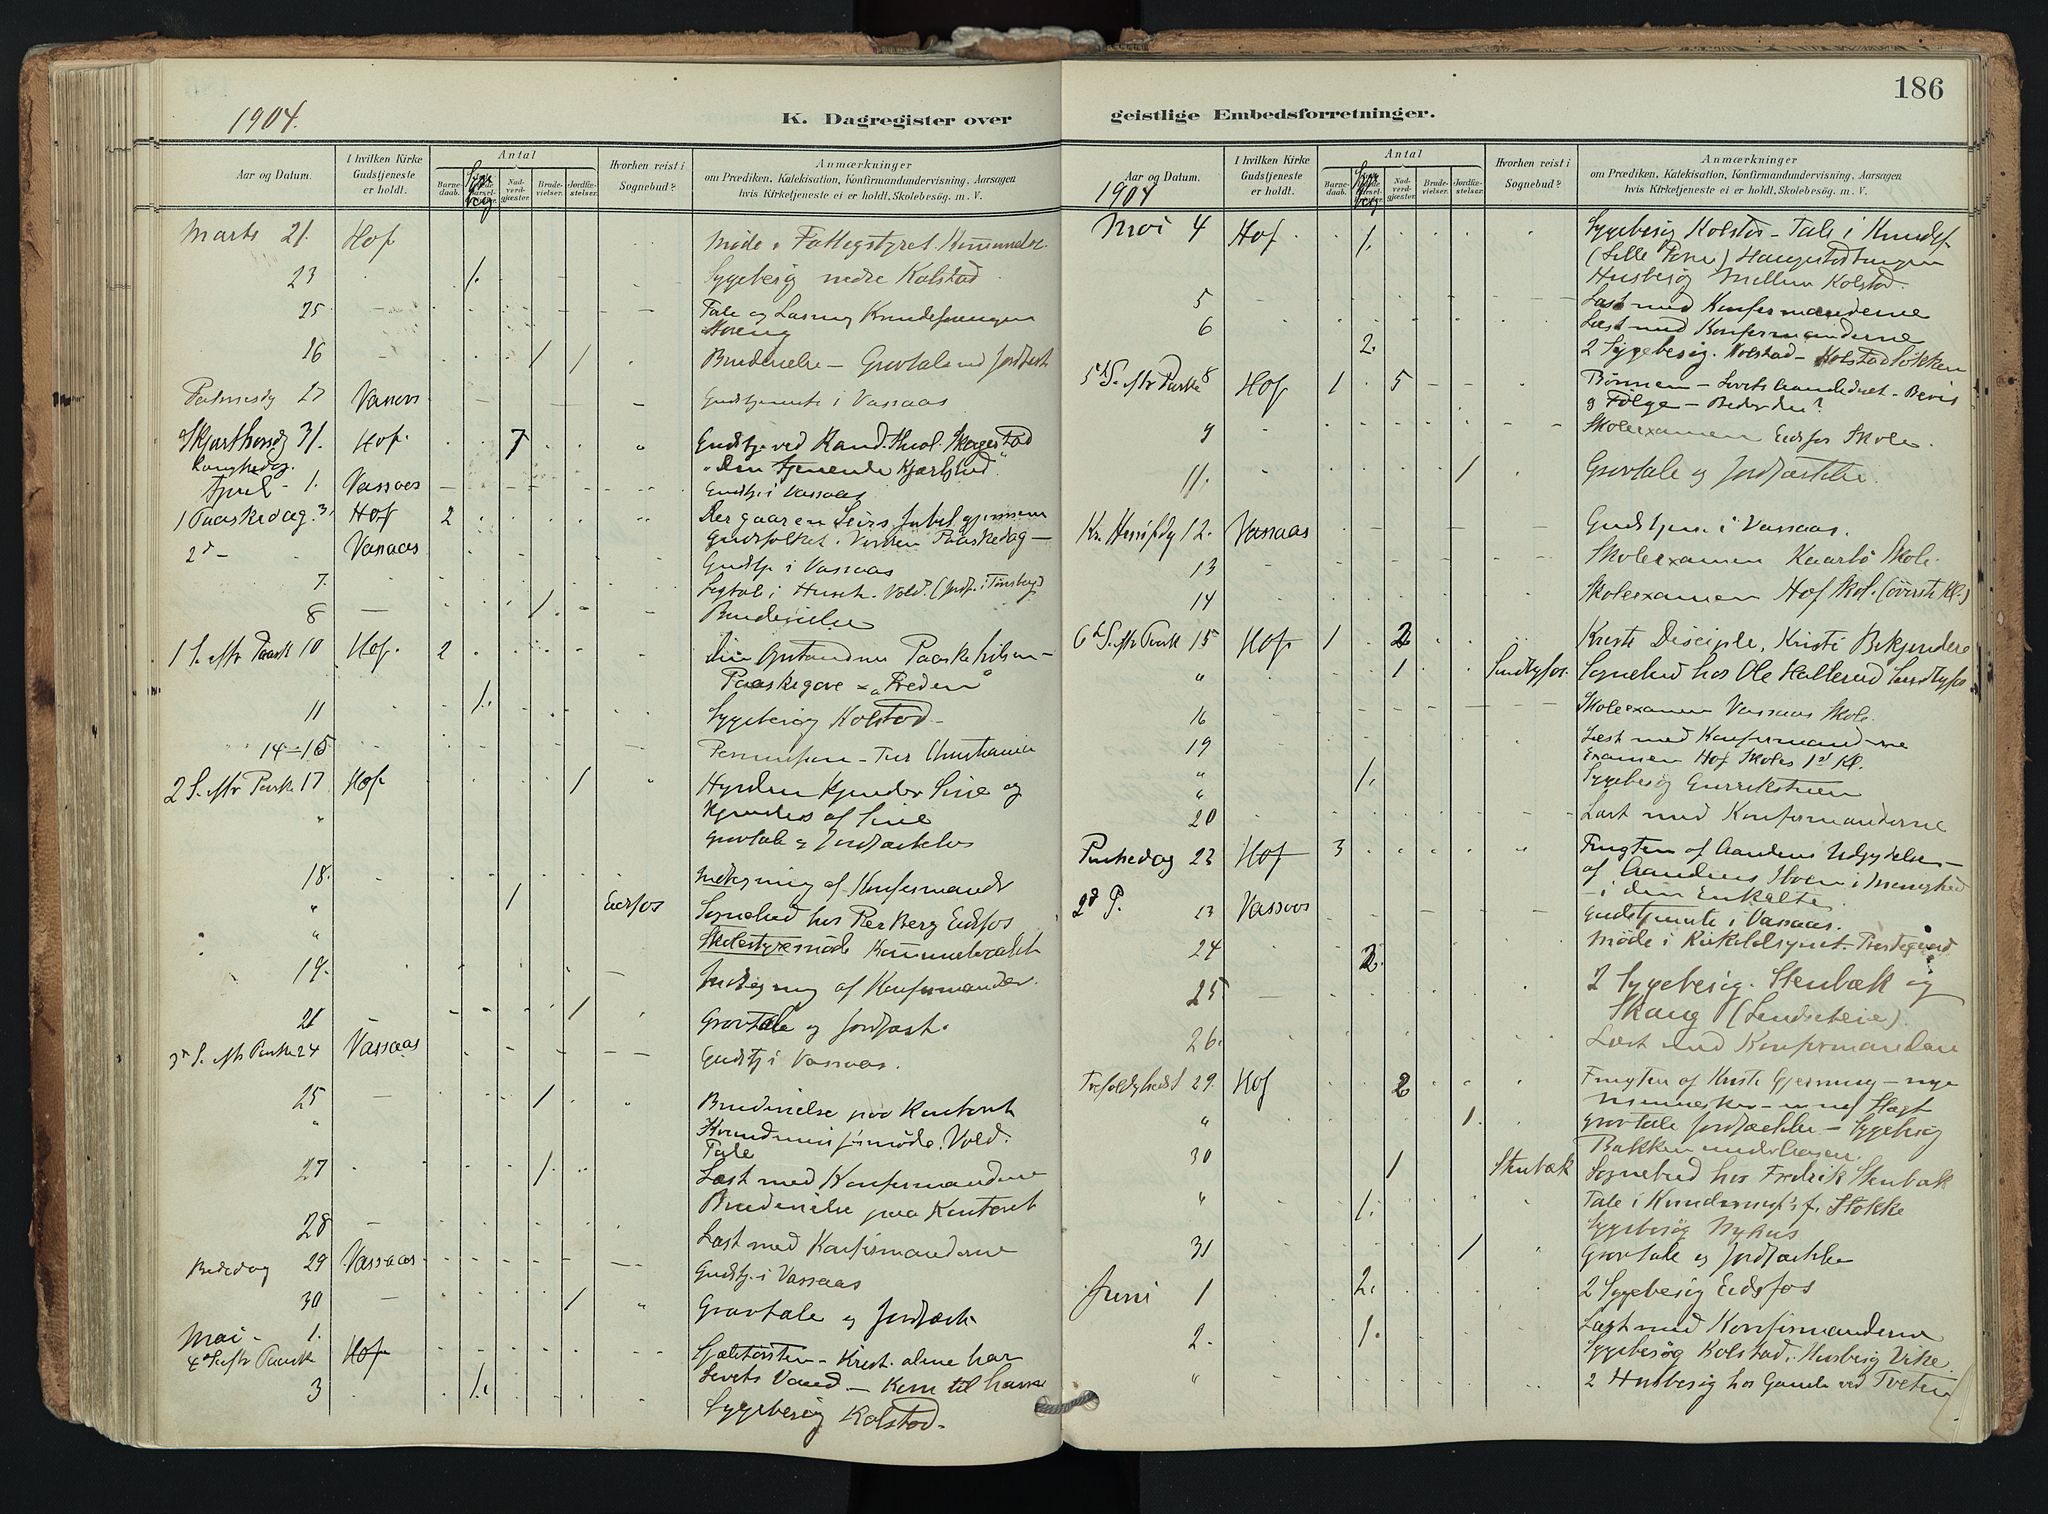 1904.
K. Dagregister over
Aar og Datum.
I hvilken Kirke Gudstjeneste er holdt.
Antal
Barnedaab.
Nadverdgjæster.
Brudevielser.
Jordfæstelser.
Hvorhen reist i Sognebud?
Anmærkninger
om Prædiken, Katekisation, Konfirmandundervisning, Aarsagen
hvis Kirketjeneste ei er holdt, Skolebesög m. V.
Marts 21. Hof Møde i Fattigstyret
23 1. Sygebesøg nedre Kolstad
25 Tale og Læsning Kvindeforeningen
26 1 1 Brudevielse – Gravtale ved Jordfæst
27 Vassaas Gudstjeneste i Vassaas
Skjærthorsdg 31. Hof. 7 Gudstj. ved Kand. theol. Skagestad
Langfredag "Den tjenende Kjærlighed."
April – 1. Vassaas Gudstj. i Vassaas
1 Paaskedag 3. Hof 2 Der gaar en Seirs Jubel gjennem
2d – Vassaas Gudsfolket. Paaskedag –
Gudstj. i Vassaas
7.
8 1. Brudevielse
1 S. eftr Paask 10 Hof. 2 Den Opstandnes Paaskehilsen –
Paaskegave – "Freden"
11 1. Sygebesøg Kolstad –
14–16 Tur Christiania
2 S. eftr Paaske 17 Hof 1 Hyrden kjender Sine og
" kjendes af Sine
Gravtale og Jordfæstelse
18. Indtegning af Konfirmander
" 1 Eidsfos Sognebud hos Per Berg Eidsfos
" Skolestyresmøde
19. Indtegning af Konfirmander.
21 1 Gravtale og Jordfæst.
3d S. eftr Paaske 24 Vassaas Gudstj i Vassaas.
25 1 Brudevielse paa Kontoret
" Vold.
Tale
27 1. Læst med Konfirmanderne
Brudevielse paa Kontoret
28 Læst med Konfirmanderne
Bededag 29 Vassaas Gudstj. i Vassaas
30 1 Gravtale og Jordfæst.
Mai – 1.
4d S eftr Paask Hof Sjæletørsten – Krist. alene har
3 1. Livets Vand – Kom til ham
Sygebesøg Kolstad.
186
geistlige Embedsforretninger.
Aar og Datum.
1904
I hvilken Kirke Gudstjeneste er holdt.
Antal
Barnedaab.
Nadverdgjæster.
Brudevielser.
Jordfæstelser.
Hvorhen reist i Sognebud?
Anmærkninger
om Prædiken, Katekisation, Konfirmandundervisning, Aarsagen
hvis Kirketjeneste ei er holdt, Skolebesög m. V.
Mai 4 Hof 1. Sygebesøg Kolstad – Tale i Kvindef
Husbesøg Mellem Kolstad.
5 Læst med Konfirmanderne
6 Læst med Konfirmanderne
2. 2 Sygebesøg. Kolstad – Kolstadløkken
5d S. eftr Paaske 8 Hof 1 5 Bønnen – Livets Aandedræt – Bevis
og Følge – Beder du?
9 Skoleexamen Eidsfos Skole.
11. 1 Gravtale og Jordfæstelse.
Kr. Himlfdg 12. Vassaas Gudstjen. i Vassaas.
13 Skoleexamen Kaarbø Skole
14 Skoleexamen Hof Skol. (øverste Kl.)
6d S. eftr Paask 15 Hof 1 2 Kristi Disciple, Kristi Bekjendere
" 1 Sundbyfos Sognebud hos Ole Hallerud Sundbyfos
16 Skoleexamen Vassaas Skole
19 Læst med Konfirmanderne
" Examen Hof Skoles 1ste Kl.
" 1. Sygebesøg
20 Læst med Konfirmanderne
Pinsedag 22 Hof 3 Frugten af Aandens Udgydelse –
af Aandens Iboen i Menighed
– i den Enkelte
2d P. 23 Vassaas Gudstjeneste i Vassaas.
24 2. Møde i Kirketilsynet. Prestegaard
25 2 Sygebesøg. Stenbæk og
Skaug
26. Læst med Konfirmandene
Trefoldighedst 29. Hof 2 Frugten af Kristi Gjerning – nye
Mennesker – en ny Slægt
" 1. Gravtale Jordfæstelse – Sygebesøg
30 1 Stenbæk Sognebud hos Fredrik Stenbæk
" 1. Tale i Kvindemisf. Stokke
Sygebesøg Nyhus
31 1 Gravtale og Jordfæstelse
Juni 1 2. 2 Sygebesøg Eidsfos
2. 1. Læst med Konfirmanderne
Sygebesøg Kolstad. Husbesøg Vike.
" 2 Husbesøg hos Gamle ved Tveten